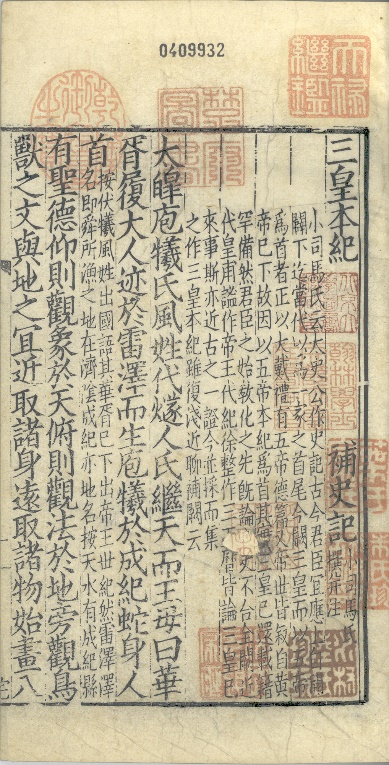 0409932
天祿繼鑑
三皇本紀
補史記
小司馬氏
撰并注
小司馬氏云太史公作史記古今君臣宜應上自開
闢下迄當代以爲一家之首尾今闕三皇而以五帝
爲首者正以大戴禮有五帝德篇又帝世皆敘自黃
帝已下故因以五帝本紀爲首其實三皇已還載籍
罕備然君臣之始敎化之先旣論古史不合全闕近
代皇甫謐作帝王代紀徐整作三五曆皆論三皇已
來事斯亦近古之一證今並採而集
之作三皇本紀雖復淺近聊補闕云
太皥庖犧氏風姓代燧人氏繼天而王母曰華
胥履大人迹於雷澤而生庖犧於成紀蛇身人
首
按伏犧風姓出國語其華胥已下出帝王世紀然雷澤澤
名即舜所漁之地在濟陰成紀亦地名按天水有成紀縣
有聖德仰則觀象於天俯則觀法於地旁觀鳥
獸之文與地之宜近取諸身遠取諸物始畫八